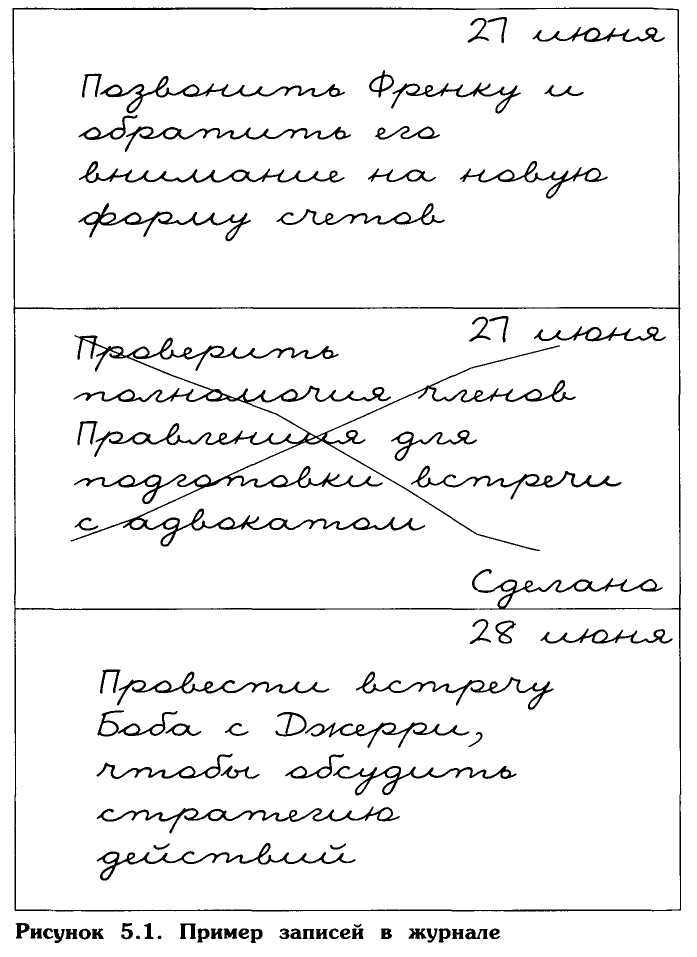 27 июня
Позвонить Френку и
обратить его
внимание на новую
форму счетов
27 июня
Проверить
полномочия членов
Правления для
подготовки встречи
с адвокатом
Сделано
28 июня
Провести встречу
Боба с Джерри,
чтобы обсудить
стратегию
действий
Рисунок 5.1. Пример записей в журнале